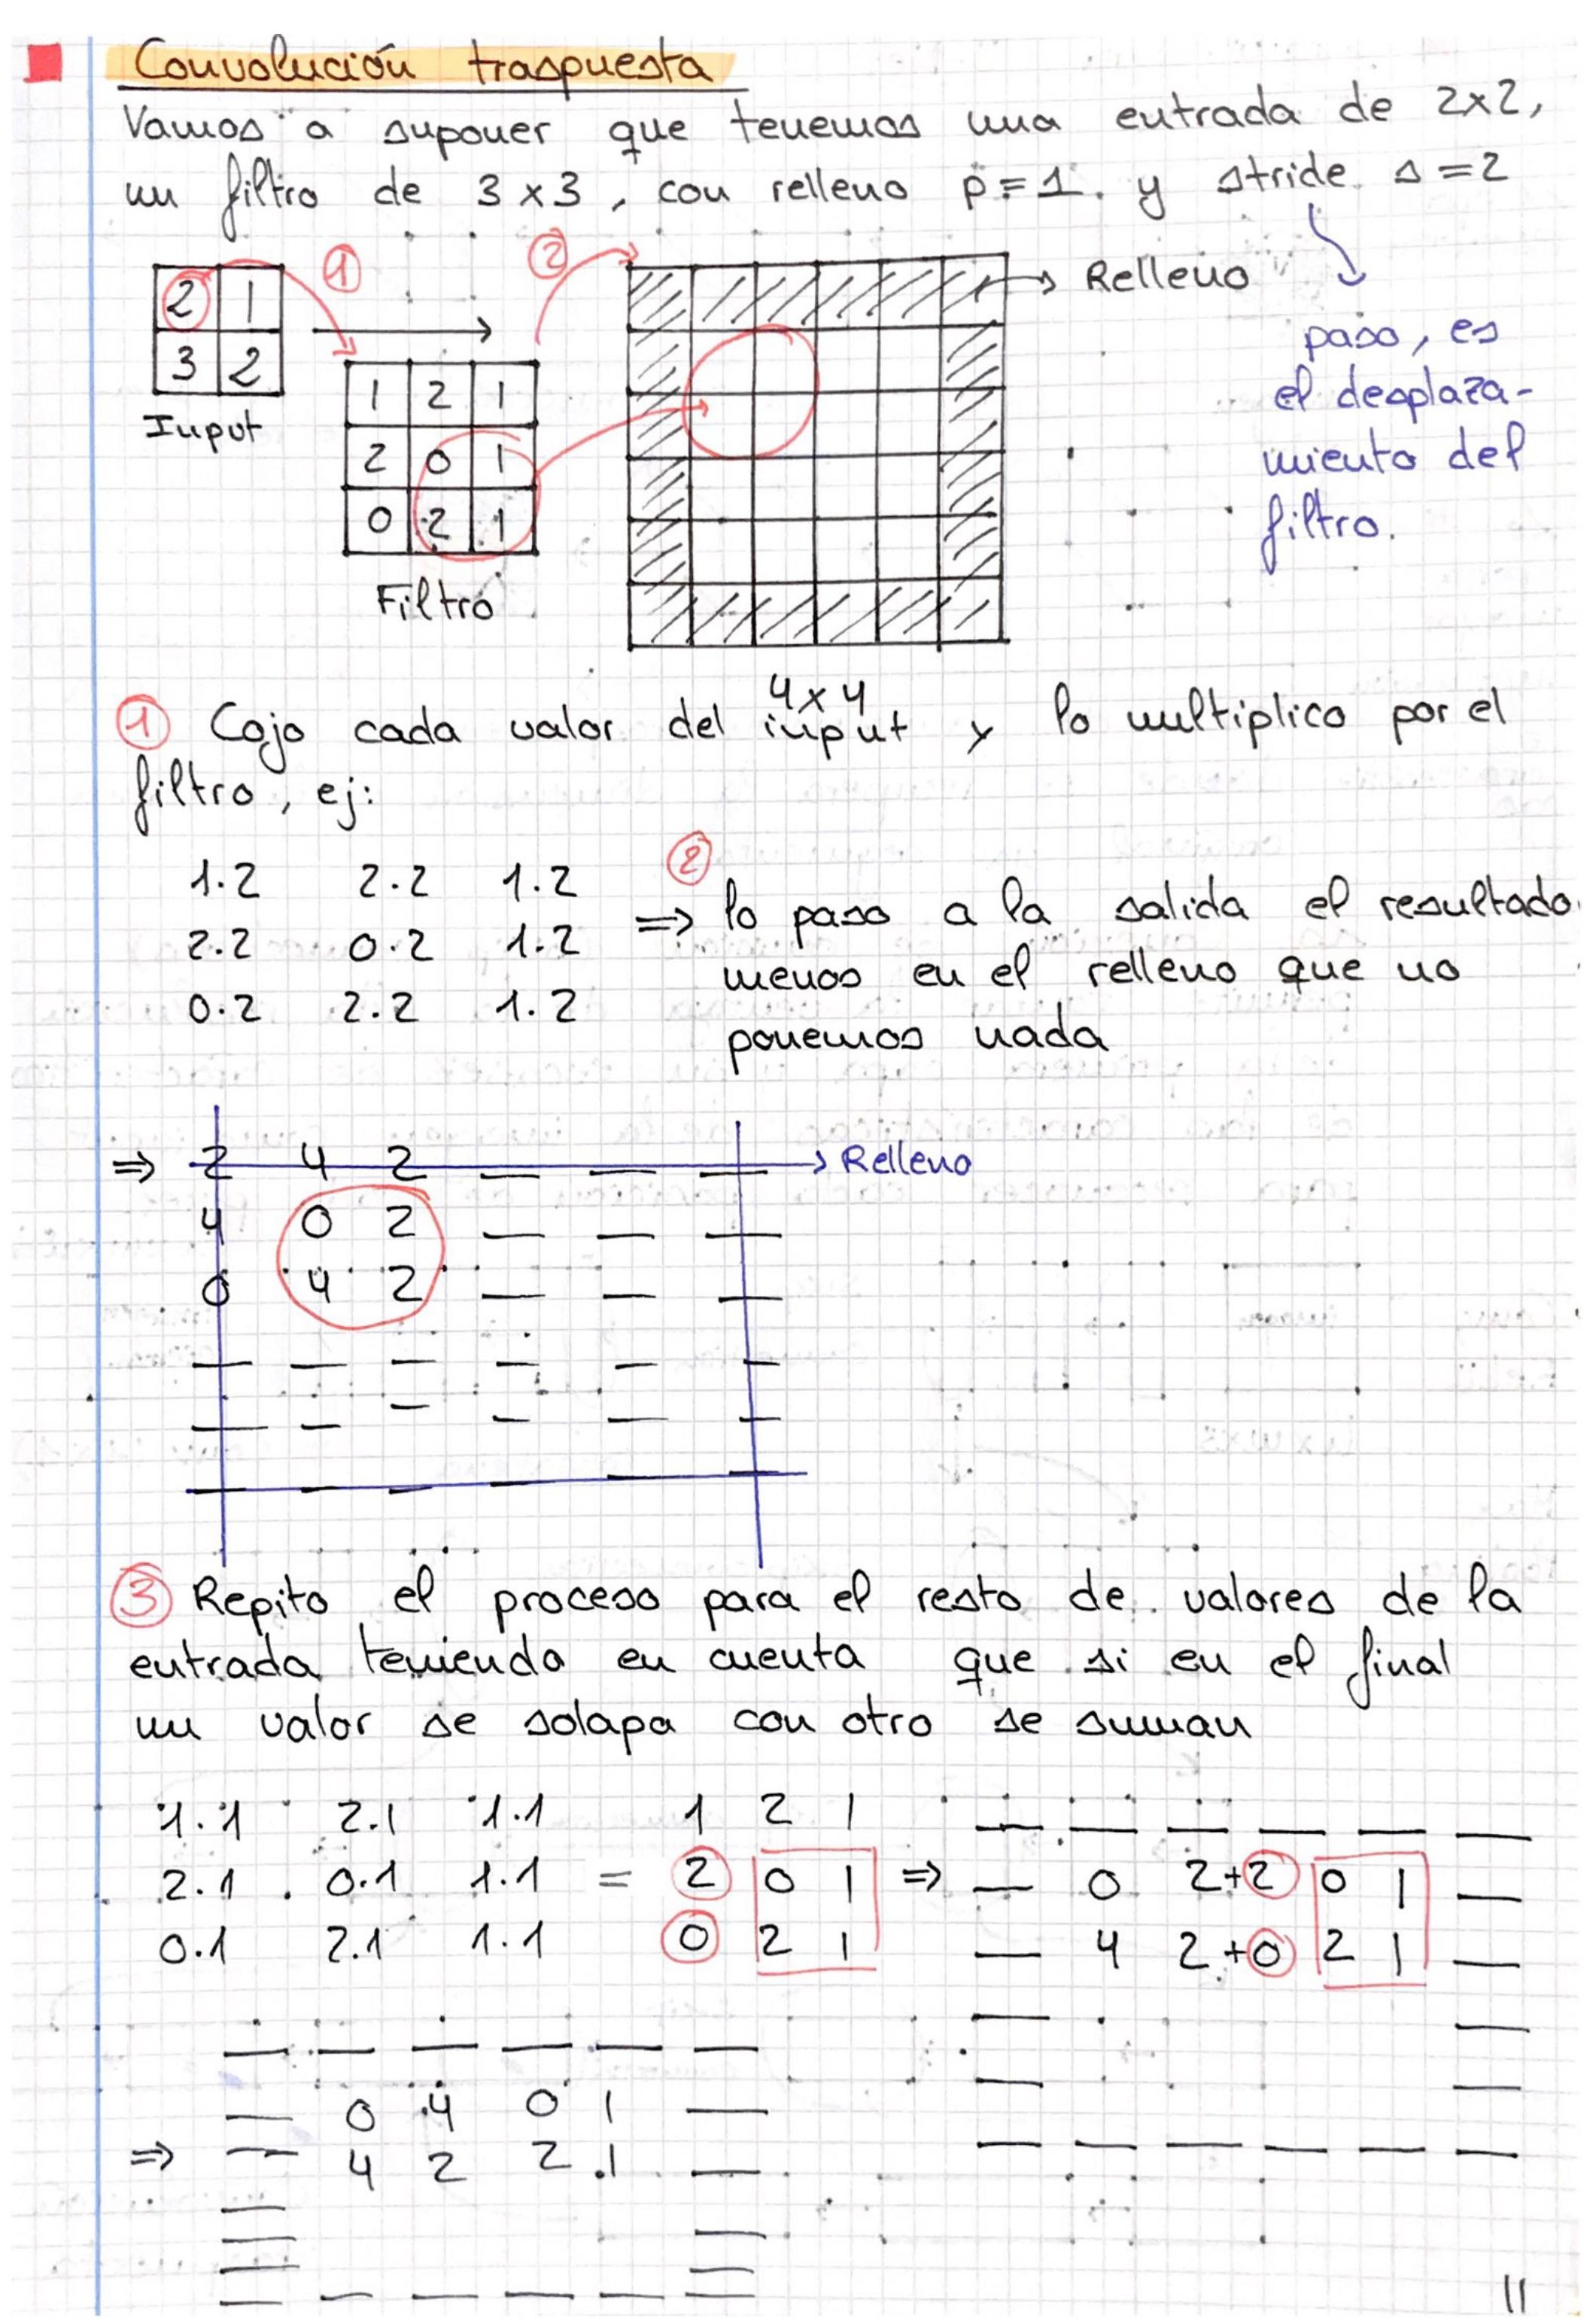 Convolución traspuesta
Vamos a suponer que tenemos una entrada de 2x2,
un filtro de 3x3, con relleno p=1. y stride s=2
① ② → Relleno
2 1
3 2
Input
paso, es
el desplaza-
miento del
filtro.
1 2 1
2 0 1
0 2 1
Filtro
4x4
① Cojo cada valor del input y lo multiplico por el
filtro, ej:
②
1.2 2.2 1.2
2.2 0.2 1.2
0.2 2.2 1.2
=> lo paso a la salida el resultado
menos en el relleno que no
ponemos nada
=> 2 4 2 — — — → Relleno
4 0 2 — — —
0 4 2 — — —
— — — — — —
— — — — — —
— — — — — —
③ Repito el proceso para el resto de valores de la
entrada teniendo en cuenta que si en el final
un valor se solapa con otro se suman
1.1 2.1 1.1 1 2 1 — — — — — —
2.1 0.1 1.1 = 2 0 1 => — 0 2+2 0 1 —
0.1 2.1 1.1 0 2 1 — 4 2+0 2 1 —
— —
— —
— — — — — —
— — — — — —
— 0 4 0 1 —
=> — 4 2 2 1 —
— —
— —
— — — — — —
11